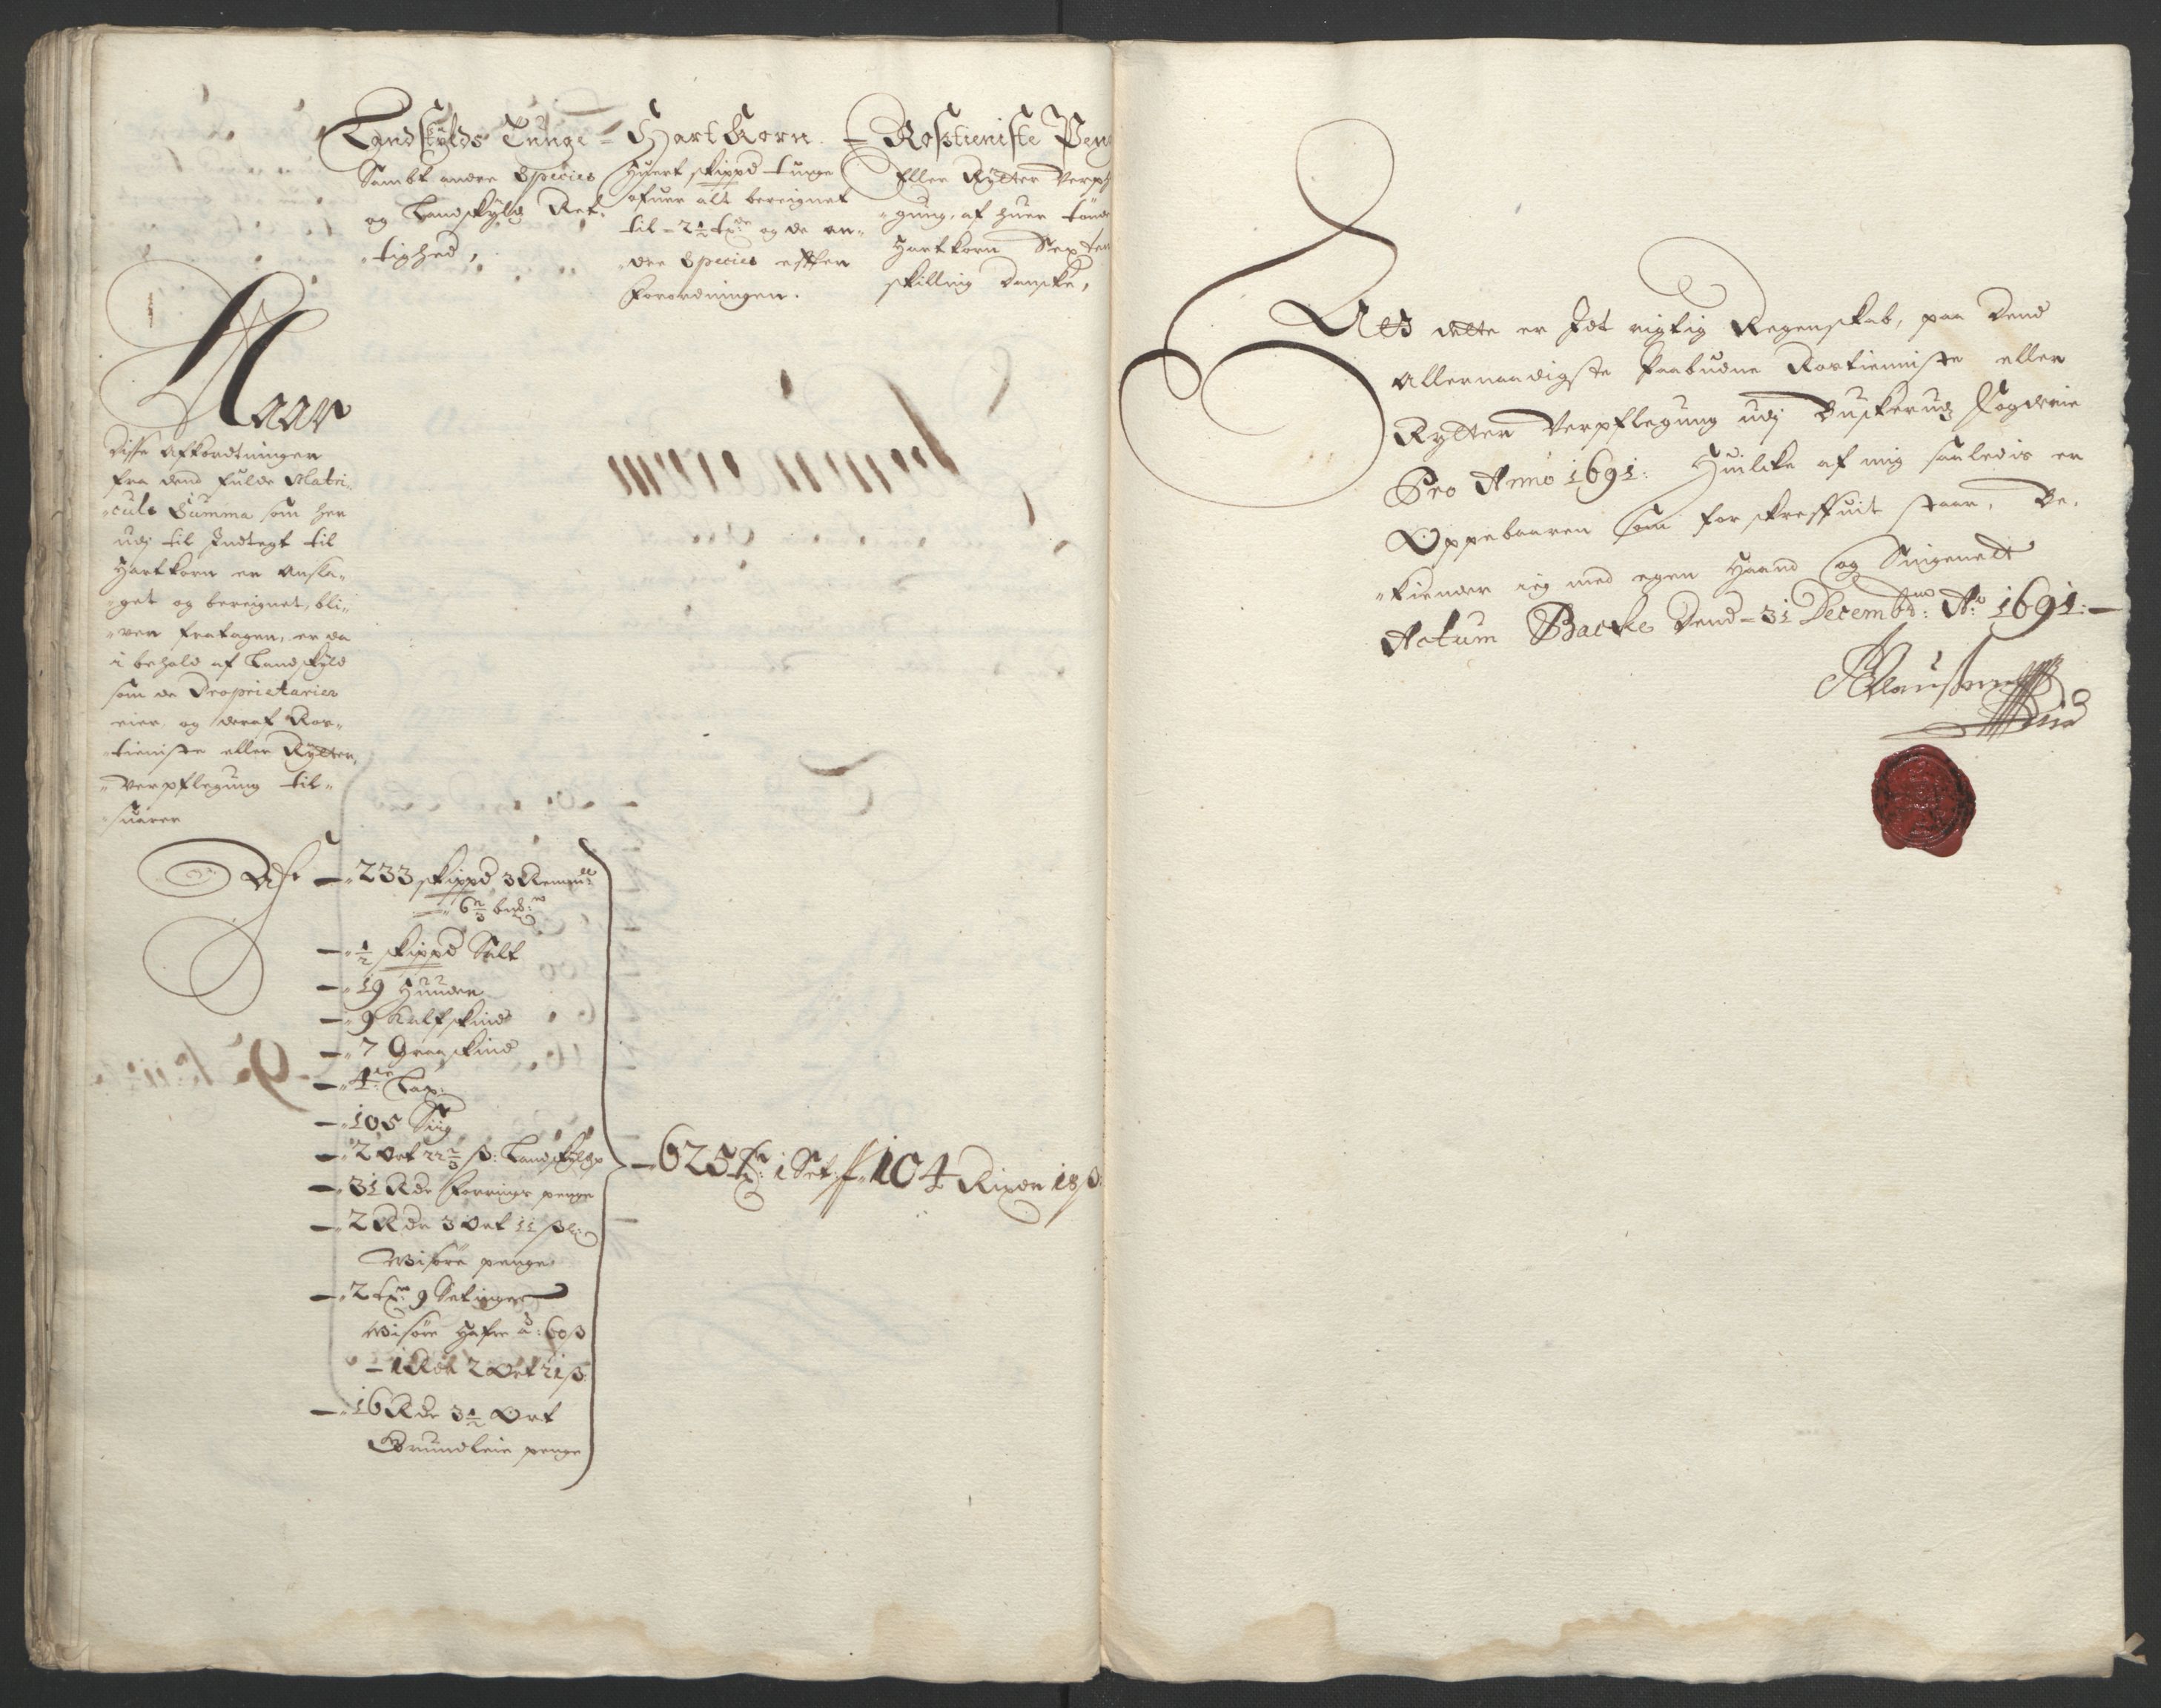 Landskylds Tunge
Sambt andre Species
og Landskyld Ret-
tighed,
Hart Korn.
Huert skippd tunge
ofuer alt bereignet
til - 2½ tr: og de an-
dre Species effter
Forordningen.
Rosztieniste Peng
Eller Rytter Verpf
gung, af huer tønde
Hartkorn Sexten
skilling Danske,
Naar
Disse Affkordtninger
fra dend fulde Matri-
culs Summa som her
udj til Indtegt til
Hartkorn er ansla-
get og bereignet, bli-
ver fratagen, er da
i behold af Landskyld
som de Proprietarier
eier, og deraf Ros-
tieniste eller Rytter
Verpflegung til-
suarer
Af
233 skippd 3 Remmll
6 2/3 bd:
½ skippd Salt
19 Huuder
9 Kalfskind
7 Graaskind
4 Lax:
105 Siig
2 Ort 22 2/3 ß: Landskyld
31 Rdr Førrings penge
2 Rdr 3 Ort 11 ß
Wisøre penge
2 tr: 9 Setinger
Wisøre Hafre a: 60 ß
1 Rdr 2 Ort 21 ß:
16 Rdr 3½ Ort
Grundleie penge
625 tr: 1 Set: 104 Rixdr 18 ß:
At dette er Idt rigtig Regenskab, paa Dend
Allernaadigste Paabudne Rostienniste eller
Rytter Verpflegung udj Buskeruds Fogderie
Pro Anno 1691: Huilcke af mig saaledis er
Oppebaaren som forskreffuit staar, Be-
kiender ieg med egen Haand og Signete
Actum Backe Dend = 31 Decembr: Ao 1691: